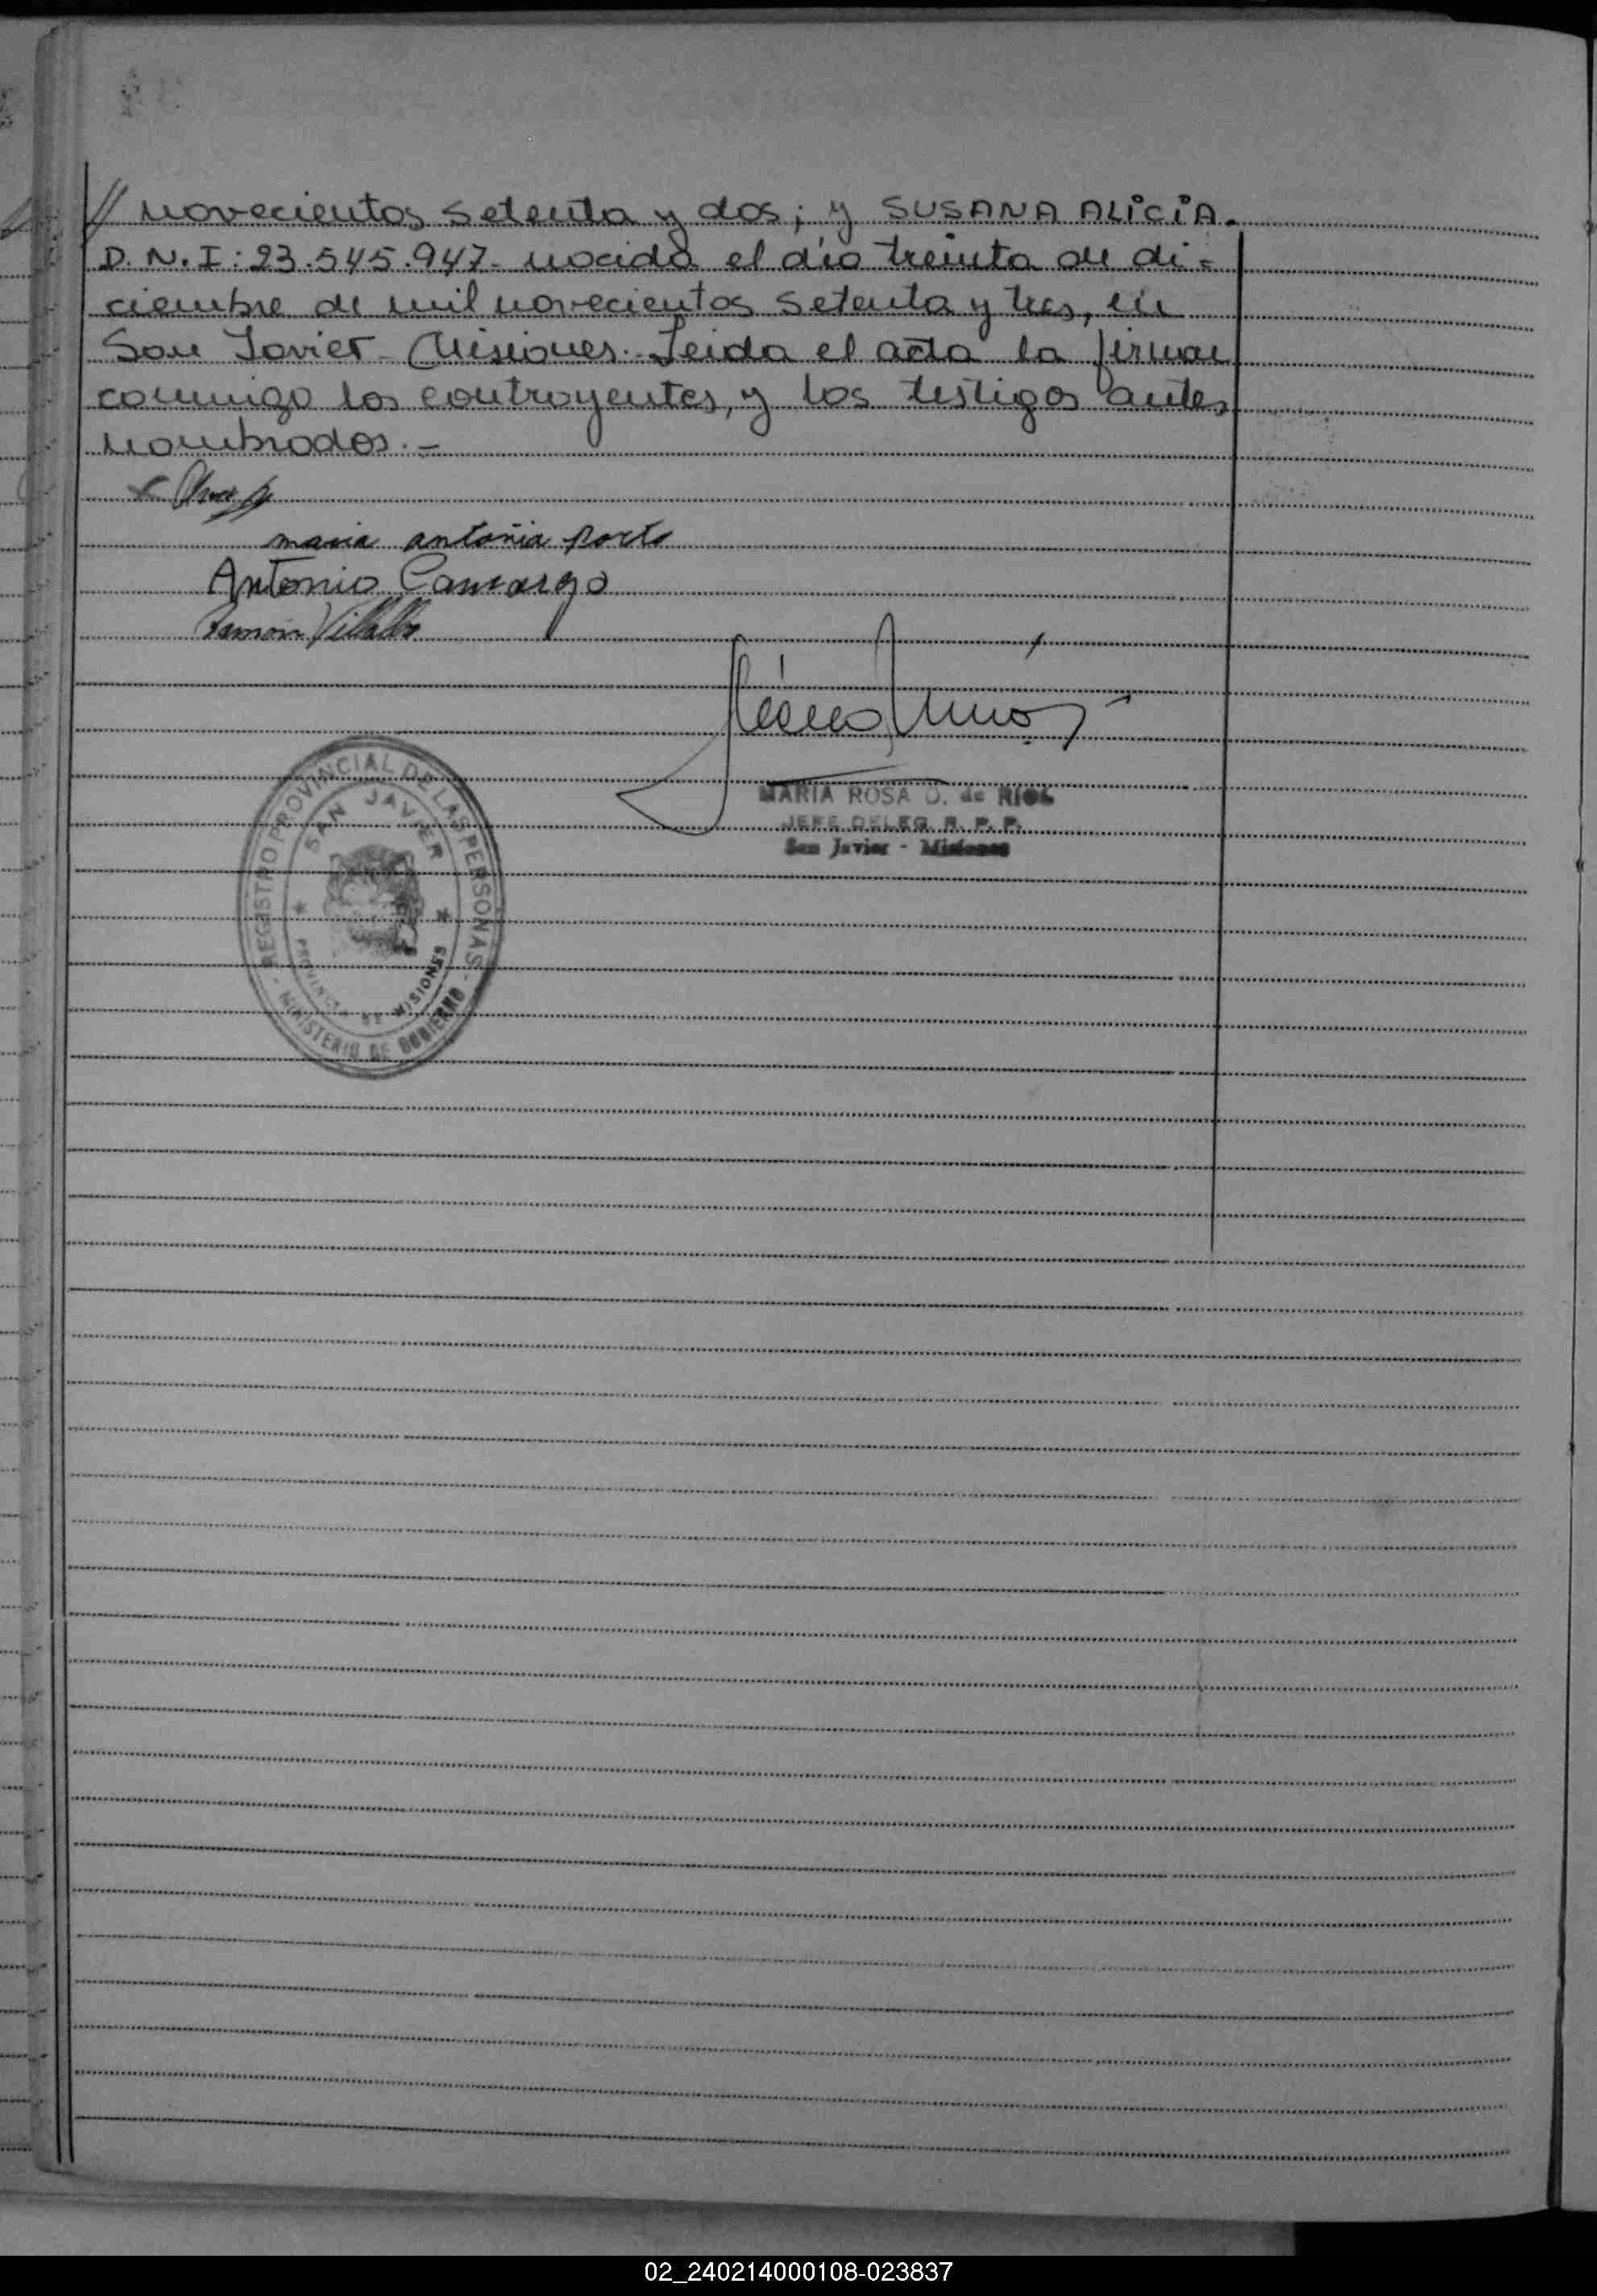 // novecientos setenta y dos; y SUSANA ALICIA.
D.N.I: 23.545.947- nacida el día treinta de di-
ciembre de mil novecientos setenta y tres, en
San Javier - Misiones. Leida el acta la firman
conmigo los contrayentes, y los testigos antes
nombrados.-
maria antonia Porto
Antonio Camargo
Ramón Villalba
MARIA ROSA O. de RIOS
JEFE DELEG. R. P. P.
San Javier - Misiones
REGISTRO PROVINCIAL DE LAS PERSONAS
SAN JAVIER
PROVINCIA DE MISIONES
- MINISTERIO DE GOBIERNO -
02_240214000108-023837